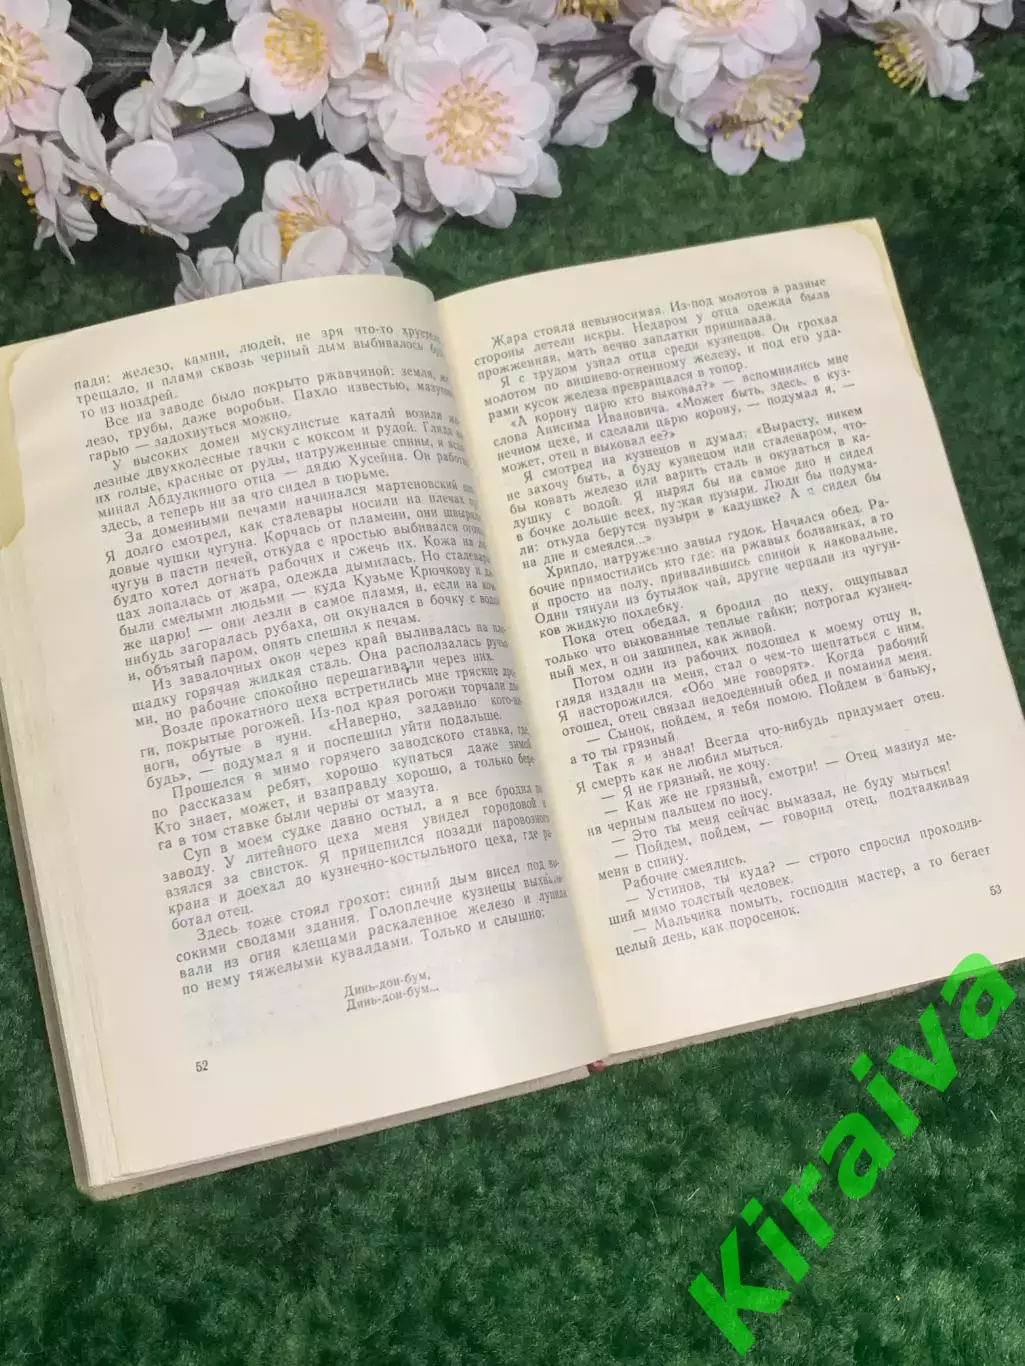 пади: железо, камни, людей, не зря что-то хрустело,
трещало, и пламя сквозь черный дым выбивалось буд
то из ноздрей.
Все на заводе было покрыто ржавчиной: земля, же
лезо, трубы, даже воробьи. Пахло известью, мазутом,
гарью — задохнуться можно.
У высоких домен мускулистые каталй возили же
лезные двухколесные тачки с коксом и рудой. Глядя на
их голые, красные от руды, натруженные спины, я вспо
минал Абдулкиного отца — дядю Хусейна. Он работал
здесь, а теперь ни за что сидел в тюрьме.
За доменными печами начинался мартеновский
Я долго смотрел, как сталевары носили на плечах
довые чушки чугуна. Корчась от пламени, они швыряли
чугун в пасти печей, откуда с яростью выбивался огонь,
будто хотел догнать рабочих и сжечь их. Кожа на
цах лопалась от жара, одежда дымилась. Но сталевары
были смелыми людьми — куда Кузьме Крючкову и да
же царю! — они лезли в самое пламя, и, если на ком
нибудь загоралась рубаха, он окунался в бочку с водой
и, объятый паром, опять спешил к печам.
Из завалочных окон через край выливалась на пло
щадку горячая жидкая сталь. Она расползалась ручья
ми, но рабочие спокойно перешагивали через них.
Возле прокатного цеха встретились мне тряские дро
ги, покрытые рогожей. Из-под края рогожи торчали
ноги, обутые в чуни. «Наверно, задавило кого-ни
будь», — подумал я и поспешил уйти подальше.
Прошелся я мимо горячего заводского ставка, где,
по рассказам ребят, хорошо купаться даже зимой.
Кто знает, может, и взаправду хорошо, а только бере
га в том ставке были черны от мазута.
Суп в моем судке давно остыл, а я все бродил по
заводу. У литейного цеха меня увидел городовой и
взялся за свисток. Я прицепился позади паровозного
крана и доехал до кузнечно-костыльного цеха, где ра
ботал отец.
Здесь тоже стоял грохот: синий дым висел под вы
сокими сводами здания. Голоплечие кузнецы выхва
вали из огня клещами раскаленное железо и лупили
по нему тяжелыми кувалдами. Только и слышно:
Динь-дон-бум,
Динь-дон-бум...
52
Жара стояла невыносимая. Из-под молотов в разные
стороны летели искры. Недаром у отца одежда была
прожженная, мать вечно заплатки пришивала.
Я с трудом узнал отца среди кузнецов. Он грохал
молотом по вишнево-огненному железу, и под его уда-
рами кусок железа превращался в топор.
«А корону парю кто выковал?» — вспомнились мне
слова Анисима Ивановича. «Может быть, здесь, в куз-
нечном цехе, и сделали царю корону, — подумал я, —
может, отец и выковал ее?»
Я смотрел на кузнецов и думал: «Вырасту, никем
не захочу быть, а буду кузнецом или сталеваром, что-
бы ковать железо или варить сталь и окунаться в ка-
душку с водой. Я нырял бы на самое дно и сидел
в бочке дольше всех, пуская пузыри. Люди бы подума-
ли: откуда берутся пузыри в кадушке? А я сидел бы
на дне и смеялся...»
Хрипло, натруженно завыл гудок. Начался обед. Ра-
бочие примостились кто где: на ржавых болванках, а то
и просто на полу, привалившись спиной к наковальне.
Одни тянули из бутылок чай, другие черпали из чугун-
ков жидкую похлебку.
Пока отец обедал, я бродил по цеху, ощупывал
только что выкованные теплые гайки; потрогал кузнеч-
ный мех, и он зашипел, как живой.
Потом один из рабочих подошел к моему отцу и,
глядя издали на меня, стал о чем-то шептаться с ним.
Я насторожился. «Обо мне говорят». Когда рабочий
отошел, отец связал недоеденный обед и поманил меня.
— Сынок, пойдем, я тебя помою. Пойдем в баньку,
а то ты грязный.
Так я и знал! Всегда что-нибудь придумает отец.
Я смерть как не любил мыться.
— Я не грязный, не хочу.
— Как же не грязный, смотри! — Отец мазнул ме-
ня черным пальцем по носу.
— Это ты меня сейчас вымазал, не буду мыться!
— Пойдем, пойдем, — говорил отец, подталкивая
меня в спину.
Рабочие смеялись.
— Устинов, ты куда? — строго спросил проходив-
ший мимо толстый человек.
— Мальчика помыть, господин мастер, а то бегает
целый день, как поросенок.
53
Kiraiva